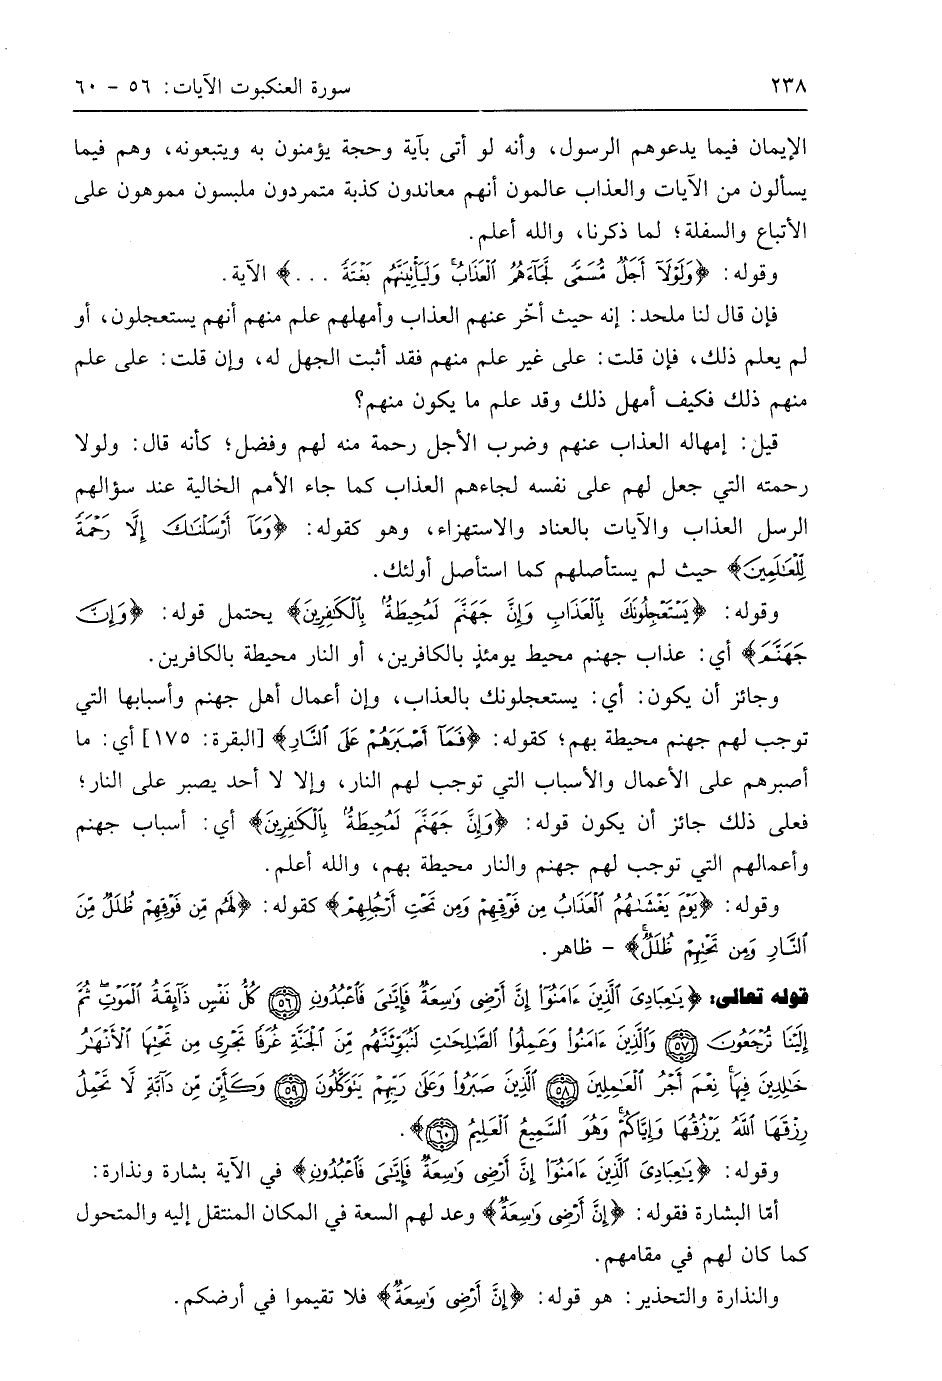 ٢٣٨ سورة العنكبوت الآيات: ٥٦ - ٦٠
الإيمان فيما يدعوهم الرسول، وأنه لو أتى بآية وحجة يؤمنون به ويتبعونه، وهم فيما
يسألون من الآيات والعذاب عالمون أنهم معاندون كذبة متمردون ملبسون مموهون على
الأتباع والسفلة؛ لما ذكرنا، والله أعلم.
وقوله: ﴿وَلَوْلَآ أَجَلٌ مُّسَمًّى لَّجَآءَهُمُ ٱلْعَذَابُ وَلَيَأْتِيَنَّهُم بَغْتَةً ...﴾ الآية.
فإن قال لنا ملحد: إنه حيث أخّر عنهم العذاب وأمهلهم علم منهم أنهم يستعجلون، أو
لم يعلم ذلك، فإن قلت: على غير علم منهم فقد أثبت الجهل له، وإن قلت: على علم
منهم ذلك فكيف أمهل ذلك وقد علم ما يكون منهم؟
قيل: إمهاله العذاب عنهم وضرب الأجل رحمة منه لهم وفضل؛ كأنه قال: ولولا
رحمته التي جعل لهم على نفسه لجاءهم العذاب كما جاء الأمم الخالية عند سؤالهم
الرسل العذاب والآيات بالعناد والاستهزاء، وهو كقوله: ﴿وَمَآ أَرْسَلْنَٰكَ إِلَّا رَحْمَةً
لِّلْعَٰلَمِينَ﴾ حيث لم يستأصلهم كما استأصل أولئك.
وقوله: ﴿يَسْتَعْجِلُونَكَ بِٱلْعَذَابِ وَإِنَّ جَهَنَّمَ لَمُحِيطَةٌۢ بِٱلْكَٰفِرِينَ﴾ يحتمل قوله: ﴿وَإِنَّ
جَهَنَّمَ﴾ أي: عذاب جهنم محيط يومئذٍ بالكافرين، أو النار محيطة بالكافرين.
وجائز أن يكون: أي: يستعجلونك بالعذاب، وإن أعمال أهل جهنم وأسبابها التي
توجب لهم جهنم محيطة بهم؛ كقوله: ﴿فَمَآ أَصْبَرَهُمْ عَلَى ٱلنَّارِ﴾ [البقرة: ١٧٥] أي: ما
أصبرهم على الأعمال والأسباب التي توجب لهم النار، وإلا لا أحد يصبر على النار؛
فعلى ذلك جائز أن يكون قوله: ﴿وَإِنَّ جَهَنَّمَ لَمُحِيطَةٌۢ بِٱلْكَٰفِرِينَ﴾ أي: أسباب جهنم
وأعمالهم التي توجب لهم جهنم والنار محيطة بهم، والله أعلم.
وقوله: ﴿يَوْمَ يَغْشَىٰهُمُ ٱلْعَذَابُ مِن فَوْقِهِمْ وَمِن تَحْتِ أَرْجُلِهِمْ﴾ كقوله: ﴿لَهُم مِّن فَوْقِهِمْ ظُلَلٌ مِّنَ
ٱلنَّارِ وَمِن تَحْتِهِمْ ظُلَلٌ﴾ - ظاهر.
قوله تعالى: ﴿يَٰعِبَادِىَ ٱلَّذِينَ ءَامَنُوٓا۟ إِنَّ أَرْضِى وَٰسِعَةٌ فَإِيَّٰىَ فَٱعْبُدُونِ ﴿٥٦﴾ كُلُّ نَفْسٍ ذَآئِقَةُ ٱلْمَوْتِ ثُمَّ
إِلَيْنَا تُرْجَعُونَ ﴿٥٧﴾ وَٱلَّذِينَ ءَامَنُوا۟ وَعَمِلُوا۟ ٱلصَّٰلِحَٰتِ لَنُبَوِّئَنَّهُم مِّنَ ٱلْجَنَّةِ غُرَفًا تَجْرِى مِن تَحْتِهَا ٱلْأَنْهَٰرُ
خَٰلِدِينَ فِيهَا نِعْمَ أَجْرُ ٱلْعَٰمِلِينَ ﴿٥٨﴾ ٱلَّذِينَ صَبَرُوا۟ وَعَلَىٰ رَبِّهِمْ يَتَوَكَّلُونَ ﴿٥٩﴾ وَكَأَيِّن مِّن دَآبَّةٍ لَّا تَحْمِلُ
رِزْقَهَا ٱللَّهُ يَرْزُقُهَا وَإِيَّاكُمْ وَهُوَ ٱلسَّمِيعُ ٱلْعَلِيمُ ﴿٦٠﴾﴾.
وقوله: ﴿يَٰعِبَادِىَ ٱلَّذِينَ ءَامَنُوٓا۟ إِنَّ أَرْضِى وَٰسِعَةٌ فَإِيَّٰىَ فَٱعْبُدُونِ﴾ في الآية بشارة ونذارة:
أمّا البشارة فقوله: ﴿إِنَّ أَرْضِى وَٰسِعَةٌ﴾ وعد لهم السعة في المكان المنتقل إليه والمتحول
كما كان لهم في مقامهم.
والنذارة والتحذير: هو قوله: ﴿إِنَّ أَرْضِى وَٰسِعَةٌ﴾ فلا تقيموا في أرضكم.